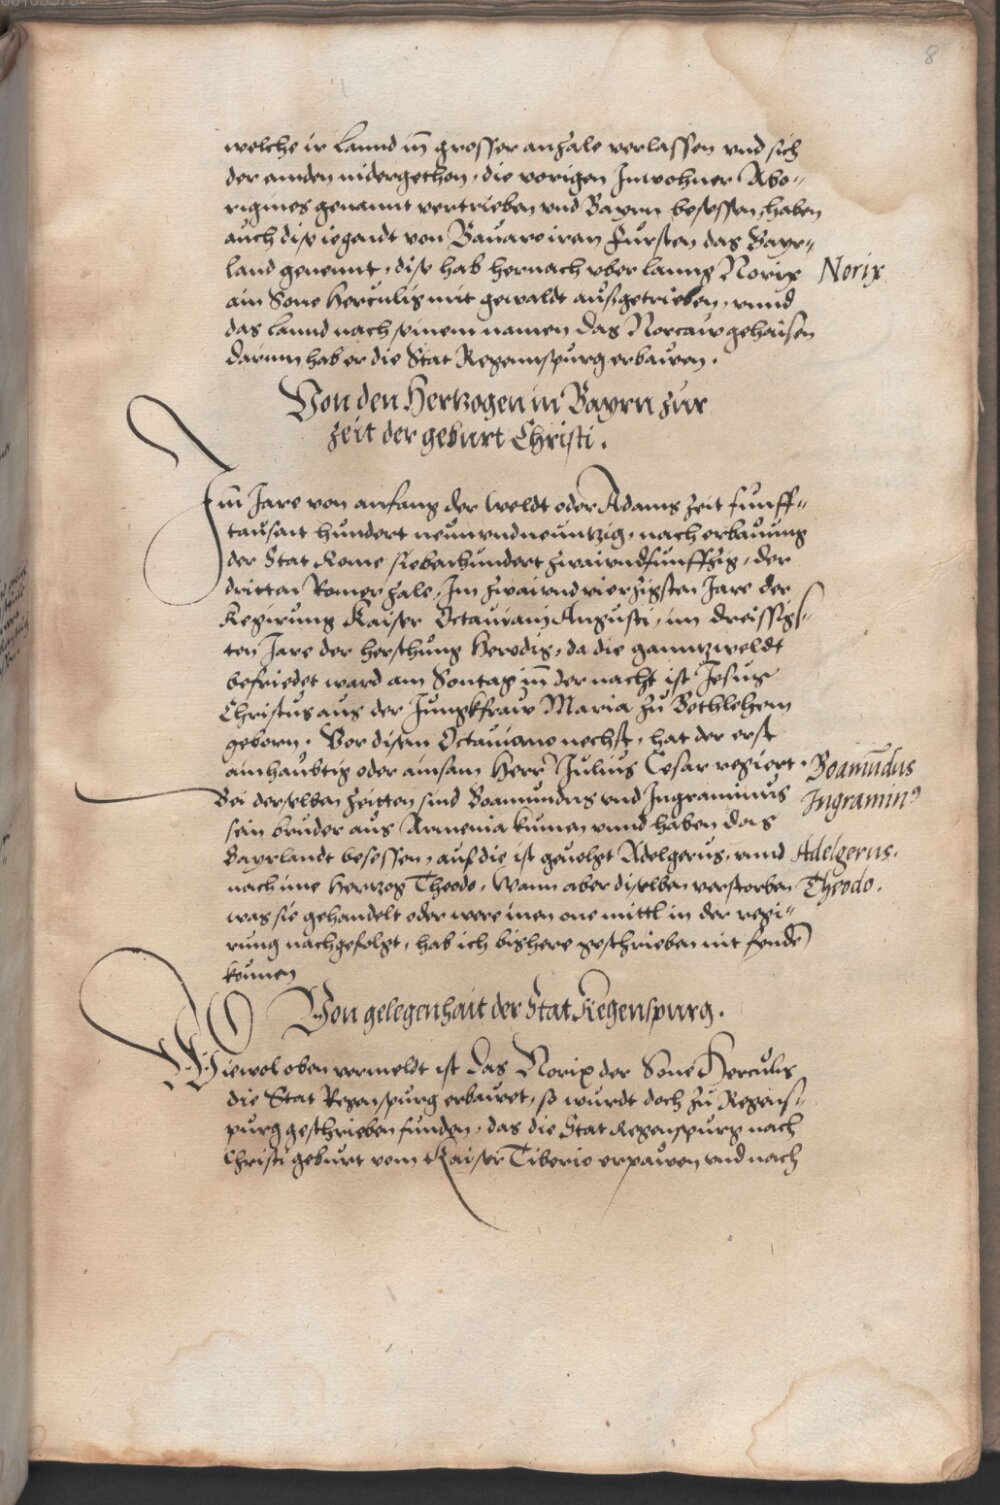 8
welche ir lannd in̄ grosser anzale verlassen vnd sich
der ennden nidergethon, die vorigen Inwohner Abo-
rigines genannt vertrieben vnd Bayrn besessen, haben
auch dise iegendt von Bauaro iren Fürsten das Bayr-
land genennt, dise hab hernach vber lanng Norix
Norix
ain Sone Herculis mit gewaldt ausgetrieben, vnnd
das lannd nach seinem namen das Norcaw gehaisen
darinn hab er die Stat Regennspurg erbawen.
Von den Hertzogen in Bayrn zur
zeit der geburt Christi.
Im̄ Jare von anfang der Weldt oder Adams zeit funff-
tausant hundert neunvndneuntzig, nach erbauung
der Stat Rome siebenhundert zwaivndfunffzig, der
dritten Romer zale, Im zwaivndvierzigsten Jare der
Regirung Kaiser Octauiani Augusti, im dreissigs-
ten Jare der herschung Herodis, da die gantz weldt
befriedet ward am Sontag in̄ der nacht ist Jesus
Christus aus der Jungkfraw Maria zu Bethlehem
geborn. Vor disem Octauiano nechst, hat der erst
ainhaubtig oder ainsam Herr Julius Cesar regiert.
Boamūdus
Bei derselben zeitten sind Boamundus vnd Ingraminus
Ingramin⁹
sein bruder aus Armenia kumen vnnd haben das
Bayrlandt besessen, auf die ist geuolgt Adelgerus, vnnd
Adelgerus.
nach ime Hertzog Theodo. Wann aber diselben verstorben
Theodo.
was sie gehandelt oder were inen one mittl in der regi-
rung nachgefolgt, hab ich bishere geschrieben nit fynden
können
Von gelegenhait der Stat Regenspurg.
Wiewol oben vermeldt ist das Norix der Sone Herculis
die Stat Regenspurg erbauet, so wurdt doch zu Regens-
purg geschrieben funden, das die Stat Regenspurg nach
Christi geburt vom Kaiser Tiberio erpawen vnd nach